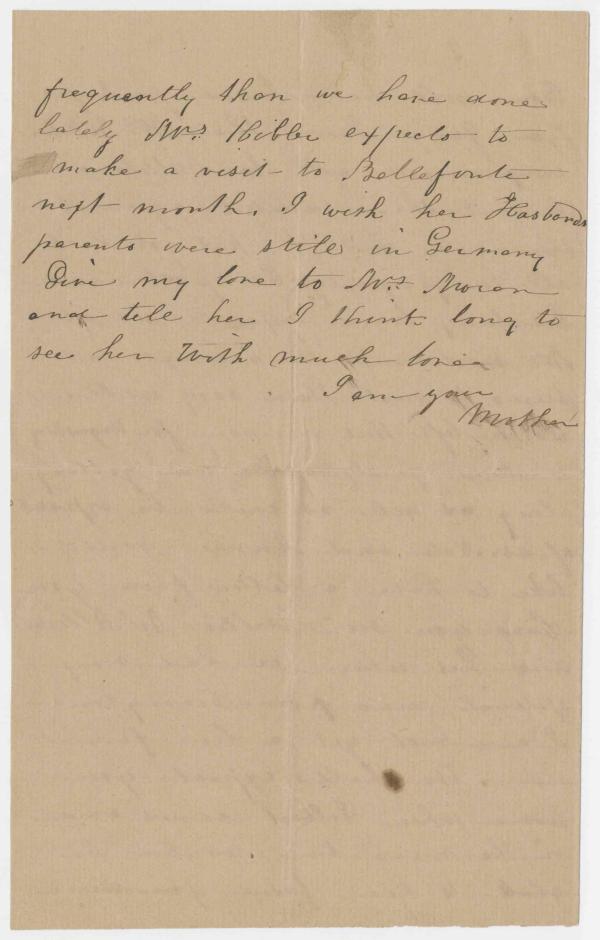 frequently than we have done
lately Mrs. Hibler expects to
make a visit to Bellefonte
next month. I wish her Husbands
parents were stile in Germany
Give my love to Mrs. Moran
and tell her I think long to
see her With much love
I am your
Mother